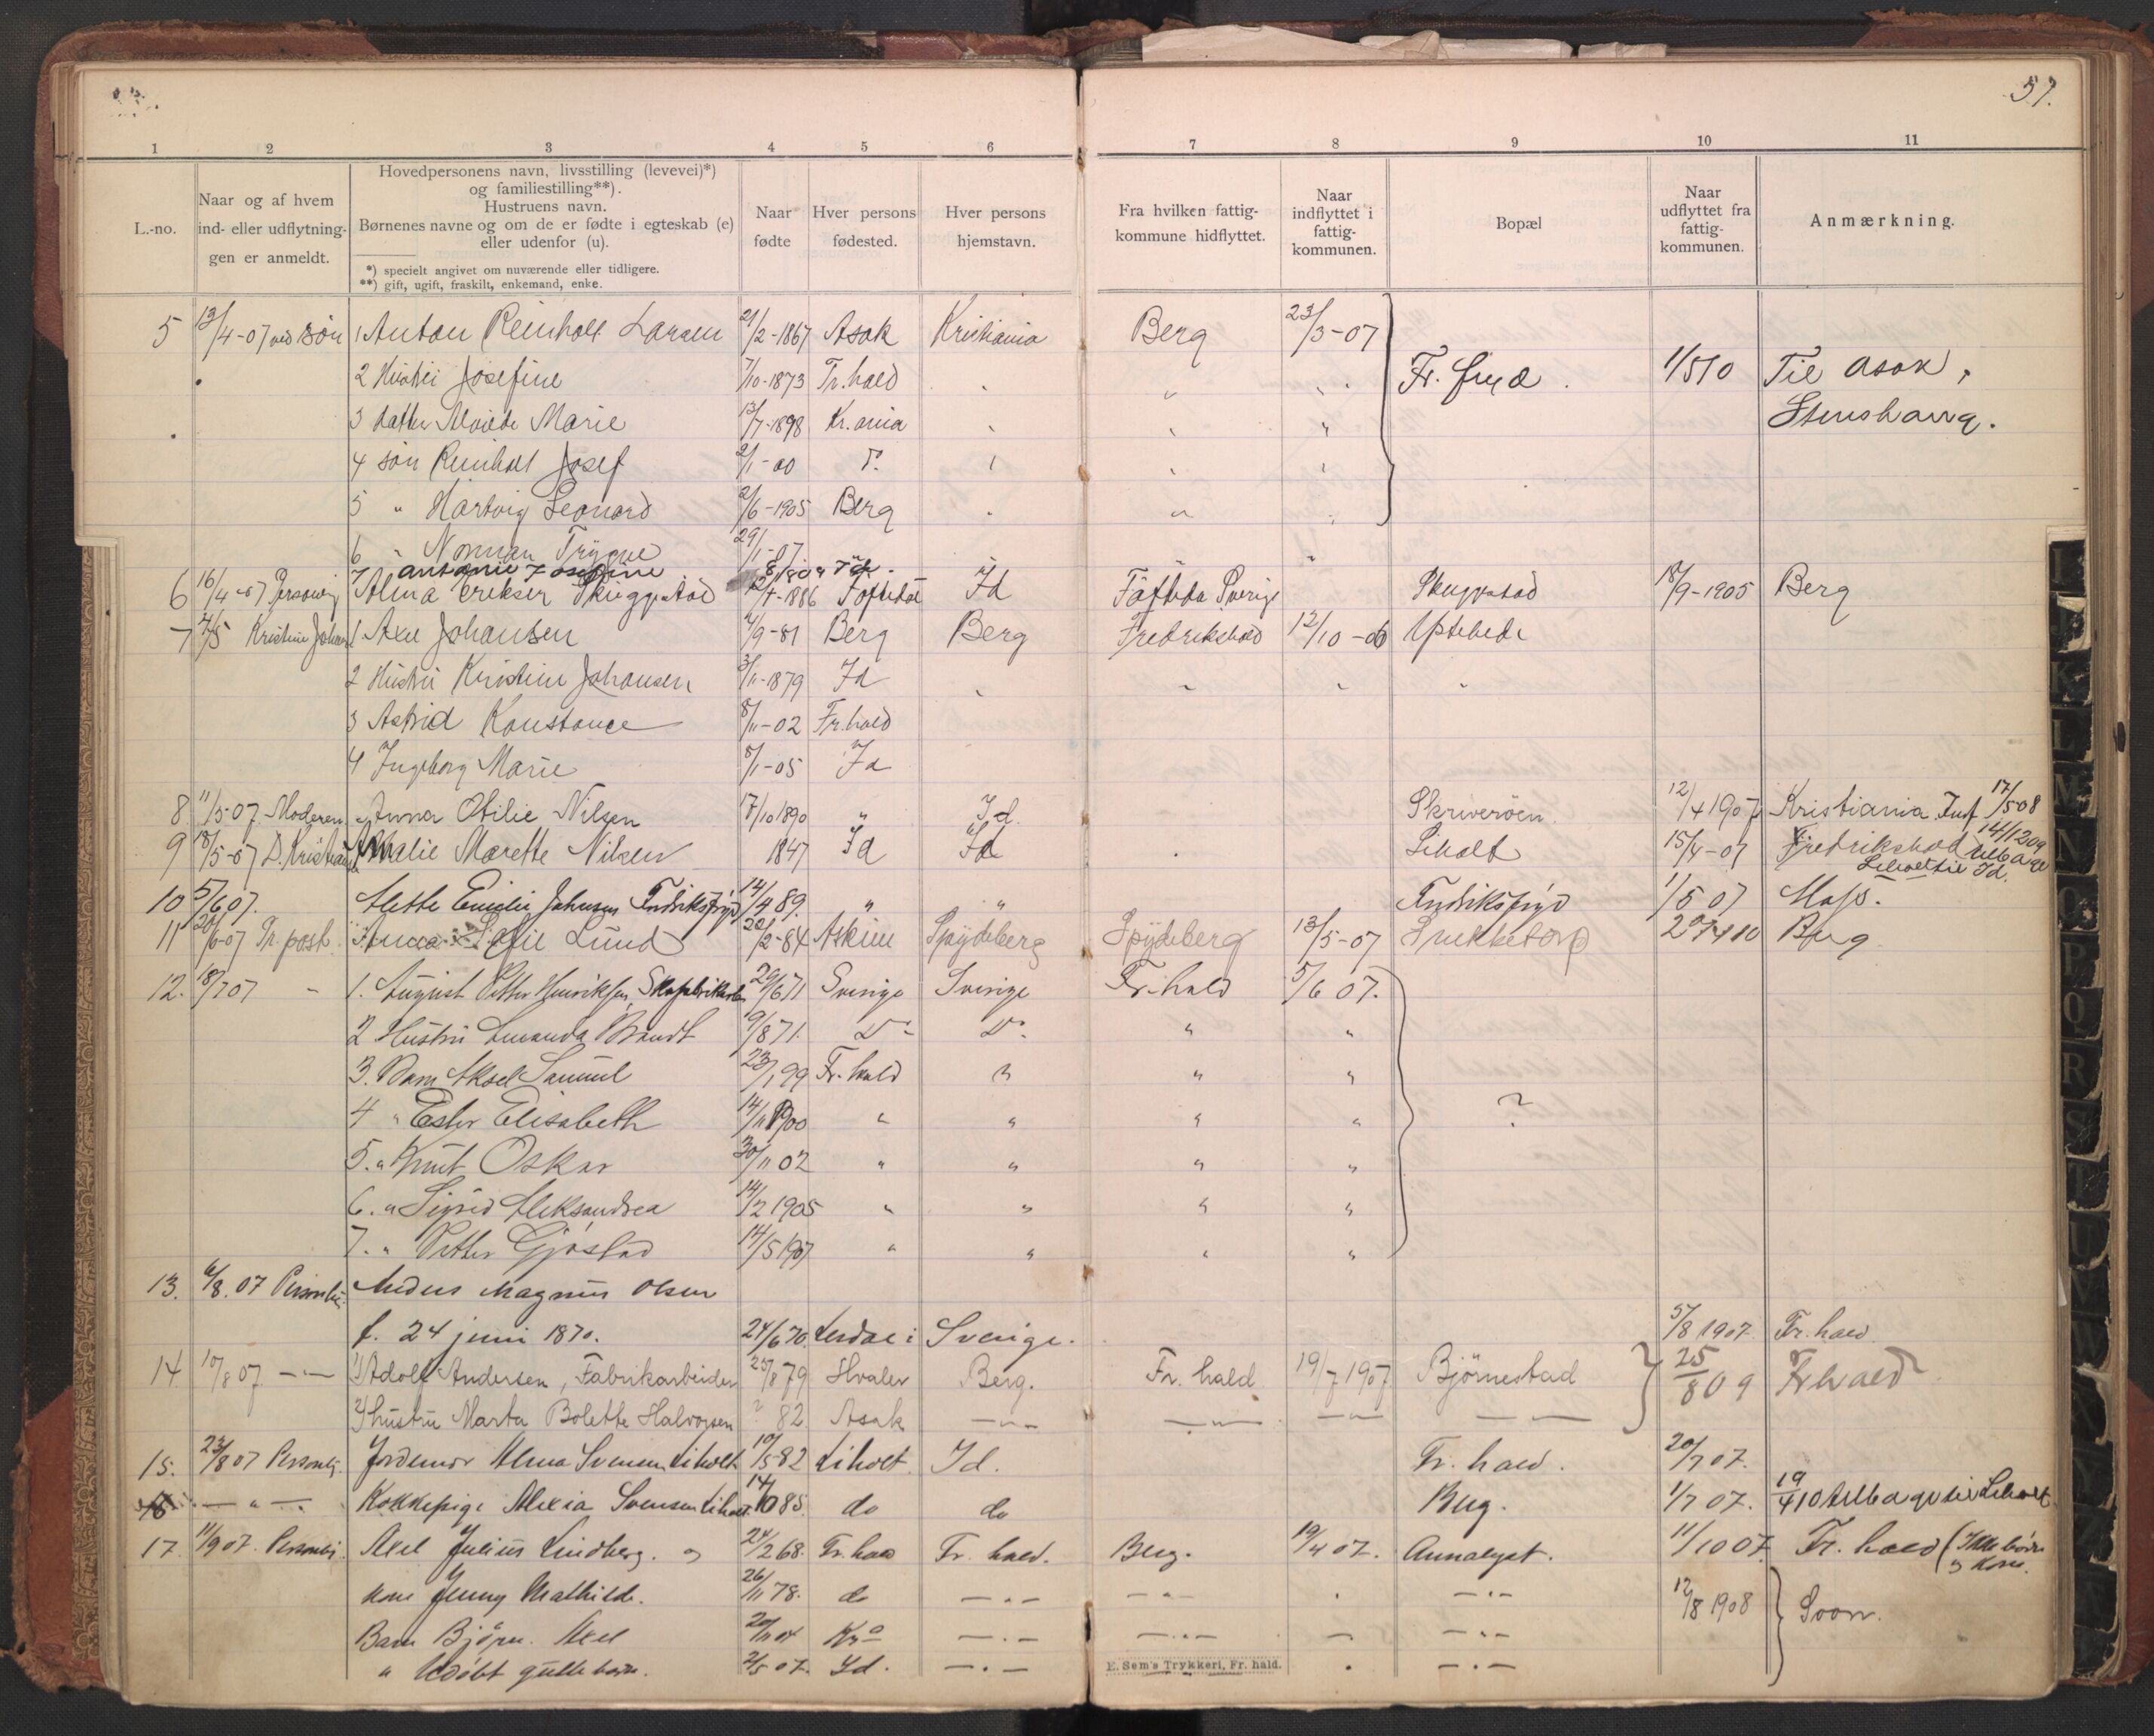 57.
1 2 3 4 5 6 7 8 9 10 11
L.-no.
Naar og af hvem ind- eller udflytningen er anmeldt.
Hovedpersonens navn, livsstilling (levevei)*) og familiestilling**).
Hustruens navn.
Børnenes navne og om de er fødte i egteskab (e) eller udenfor (u).
*) specielt angivet om nuværende eller tidligere.
**) gift, ugift, fraskilt, enkemand, enke.
Naar fødte
Hver persons fødested.
Hver persons hjemstavn.
Fra hvilken fattigkommune hidflyttet.
Naar indflyttet i fattigkommunen.
Bopæl
Naar udflyttet fra fattigkommunen.
Anmærkning.
5 13/4-07 ved 1 Anton Reinholt Larsen 21/2-1867 Asak Kristiania Berg 23/3-07
2 Hustru Josefine 7/10-1873 Fr.hald Fr. fryd 1/5 10 Til Asak,
3 datter Marie 13/7-1898 Kr.ania Stenshaug.
4 søn Reinholt Josef 2/1-00 D.
5 " Hartvig Leonard 2/6-1905 Berg
6 " Norman Trygve 29/1-07
7 Antonie Josefine
6 16/4-07 Personlig Alma Eriksen Skuggestad 12/7-1886 Töftedal Id Töftedal Sverige Skuggestad 18/9-1905 Berg
7 7/5 Kristine Johans 1 Axel Johansen 4/9-81 Berg Berg Fredrikshald 12/10-06 Opstebede
2 Hustru Kristine Johansen 3/11-1879 Id
3 Astrid Konstance 8/11-02 Fr.hald
4 Ingeborg Marie 8/1-05 Id
8 11/5-07. Moderen Anna Otilie Nilsen 17/10 1890 " Id. Skriverøen 12/4 1907 Kristiania Inf 17/5 08
9 18/5-07 D. Kristian Amalie Marette Nilsen 1847 Id Id Liholt 15/4-07 Fredrikshald tilbage 14/12 09
Liholt i Id.
10 5/6 07. Mette Emilie Johnsen Fredriksfryd 14/4 89. " " Fredriksfryd 1/5 07 Moss.
11 20/6-07 Pr. post. Anna Sofie Lund 22/2-84 Askim Spydeberg Spydeberg 13/5-07 Berg
12. 18/7 07 " 1. August Petter Henriksen, Skofabrikarb. 29/6 71 Sverige Sverige Fr.hald 5/6 07.
2 Hustru Amanda Brandt 9/8 71. Do Do " "
3. Barn Aksel Samuel 23/1 99 Fr.hald " " "
4 " Ester Elisabeth 14/11 1900 " " " " ?
5. " Knut Oskar 30/11 02 " " " "
6. " Sigrid Aleksandra 14/2 1905 " " " "
7. " Petter Gjøstad 14/5 1907 " " " "
13. 6/8. 07 Personlig. Anders Magnus Olsen
f. 24 juni 1870. 24/6 70. Lerdal i Sverige. 5/8 1907. Fr.hald
14 10/8 07 -"- 1) Adolf Andersen, Fabrikarbeider 25/8 79 Hvaler Berg. Fr. hald 19/7 1907 Bjørnestad 25/8 09 Frhald
2) hustru Marta Bolette Halvorsen ? 82. Asak -"- -"- -"- -"-
15. 23/8 07 Personlig. Jordemor Alma Svensen Liholt 10/5 82 Liholt Id. Fr. hald. 20/7 07.
16 -"-. Kokkepige Alexia Svensen Liholt. 14/10 85. do do Berg. 1/7 07. 19/4 10 tilbage til Liholt
17. 11/9 07. Personlig. Axel Julius Lindberg. og 24/2 68. Fr. hald Fr. hald. Berg. 19/4 07. Annalyst. 11/10 07. Fr. hald (Ikke børn
og kone.
kone Jenny Mathilde. 26/11 78. do -"- -"- -"- 12/8 1908 Soon.
Barn Bjørn Axel 20/11 04 Kr.a -"- -"- -"-
" Udøbt guttebarn. 2/5 07. Id. -"- -"-
E. Sem's Trykkeri, Fr. hald.
K
L
M
N
O
P
Q
R
S
T
U
V